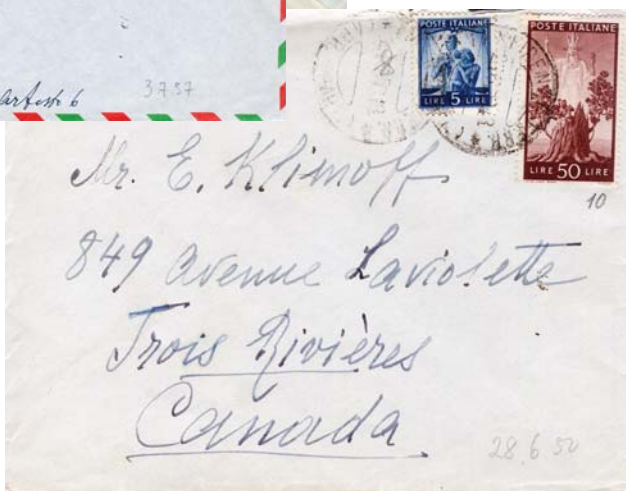 6
3.7.57
POSTE ITALIANE
LIRE 5 LIRE
POSTE ITALIANE
LIRE 50 LIRE
10
Mr. E. Klimoff
849 Avenue Laviolette
Trois Rivières
Canada
28.6.50